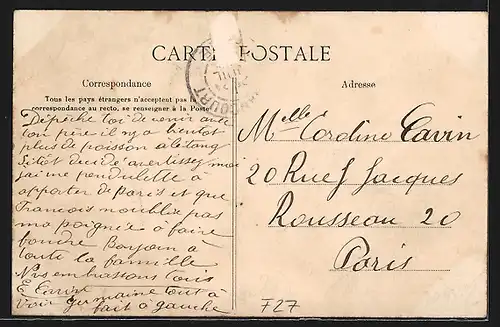 CARTE POSTALE
Correspondance
Tous les pays étrangers n'acceptent pas la
correspondance au recto, se renseigner à la Poste
Dépêche toi de venir avec
ton père il n'y a bientot
plus de poisson à l'étang
Sitot decidé avertissez moi
j'ai une pendulette à
apporter de Paris et que
Francois n'oublie pas
ma poignée à faire
Bonjour à
toute la famille
Nous embrassons tous
E
voir Germaine tout à
fait à gauche
Adresse
Melle Cardine Cavin
20 Rue J Jacques
Rousseau 20
Paris
F27